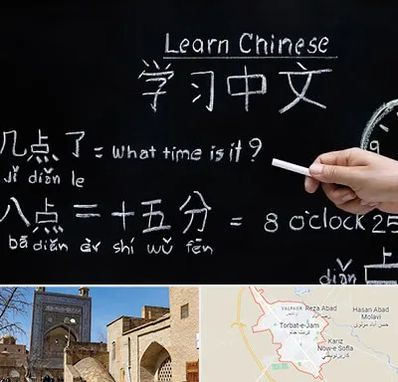 Learn Chinese
学习中文
几点了 = What time is it?
Jǐ diǎn le
八点二十五分 = 8 o'clock 25
bā diǎn èr shí wǔ fēn
上
diǎn
9
VALFAJER
Reza Abad
Hasan Abad
Molavi
حسن آباد مولوی
Torbat-e-Jam
تربت جام
Kariz
Now-e Sofla